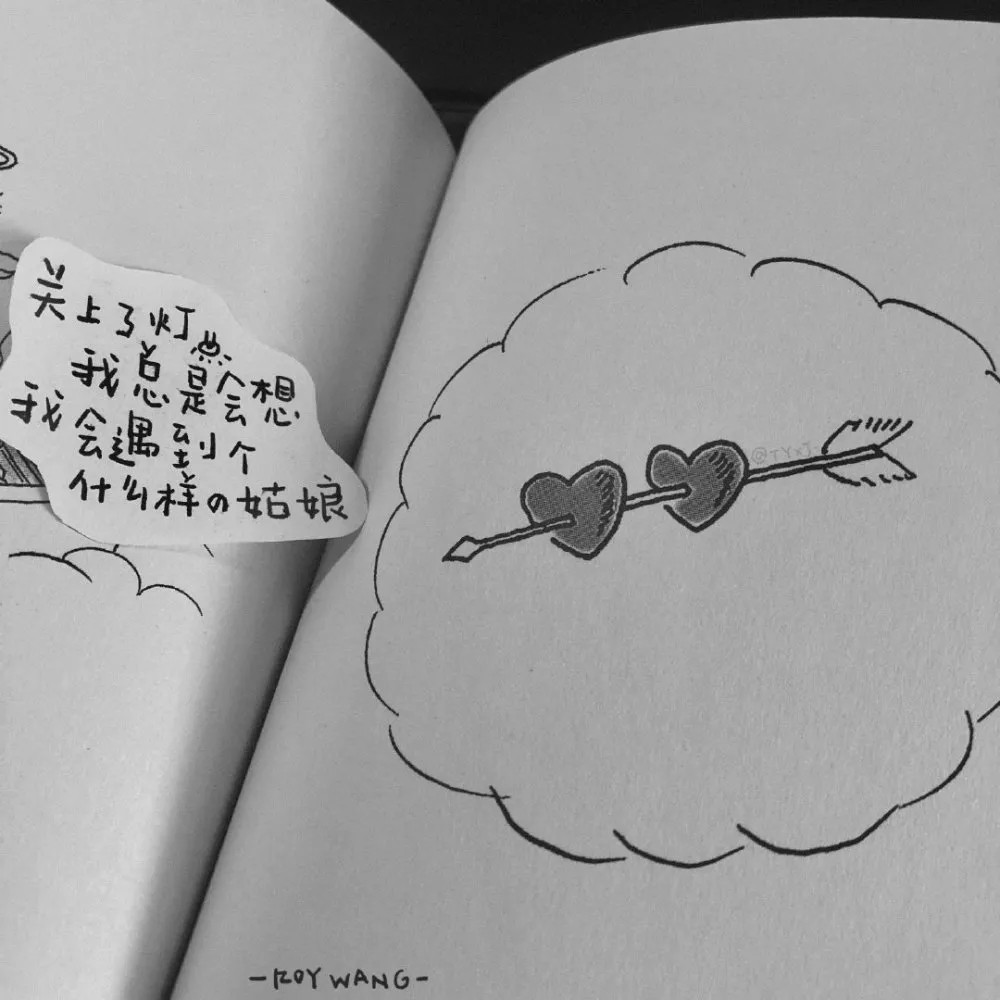 关上了灯
我总是会想
我会遇到个
什么样の姑娘
-ROY WANG-